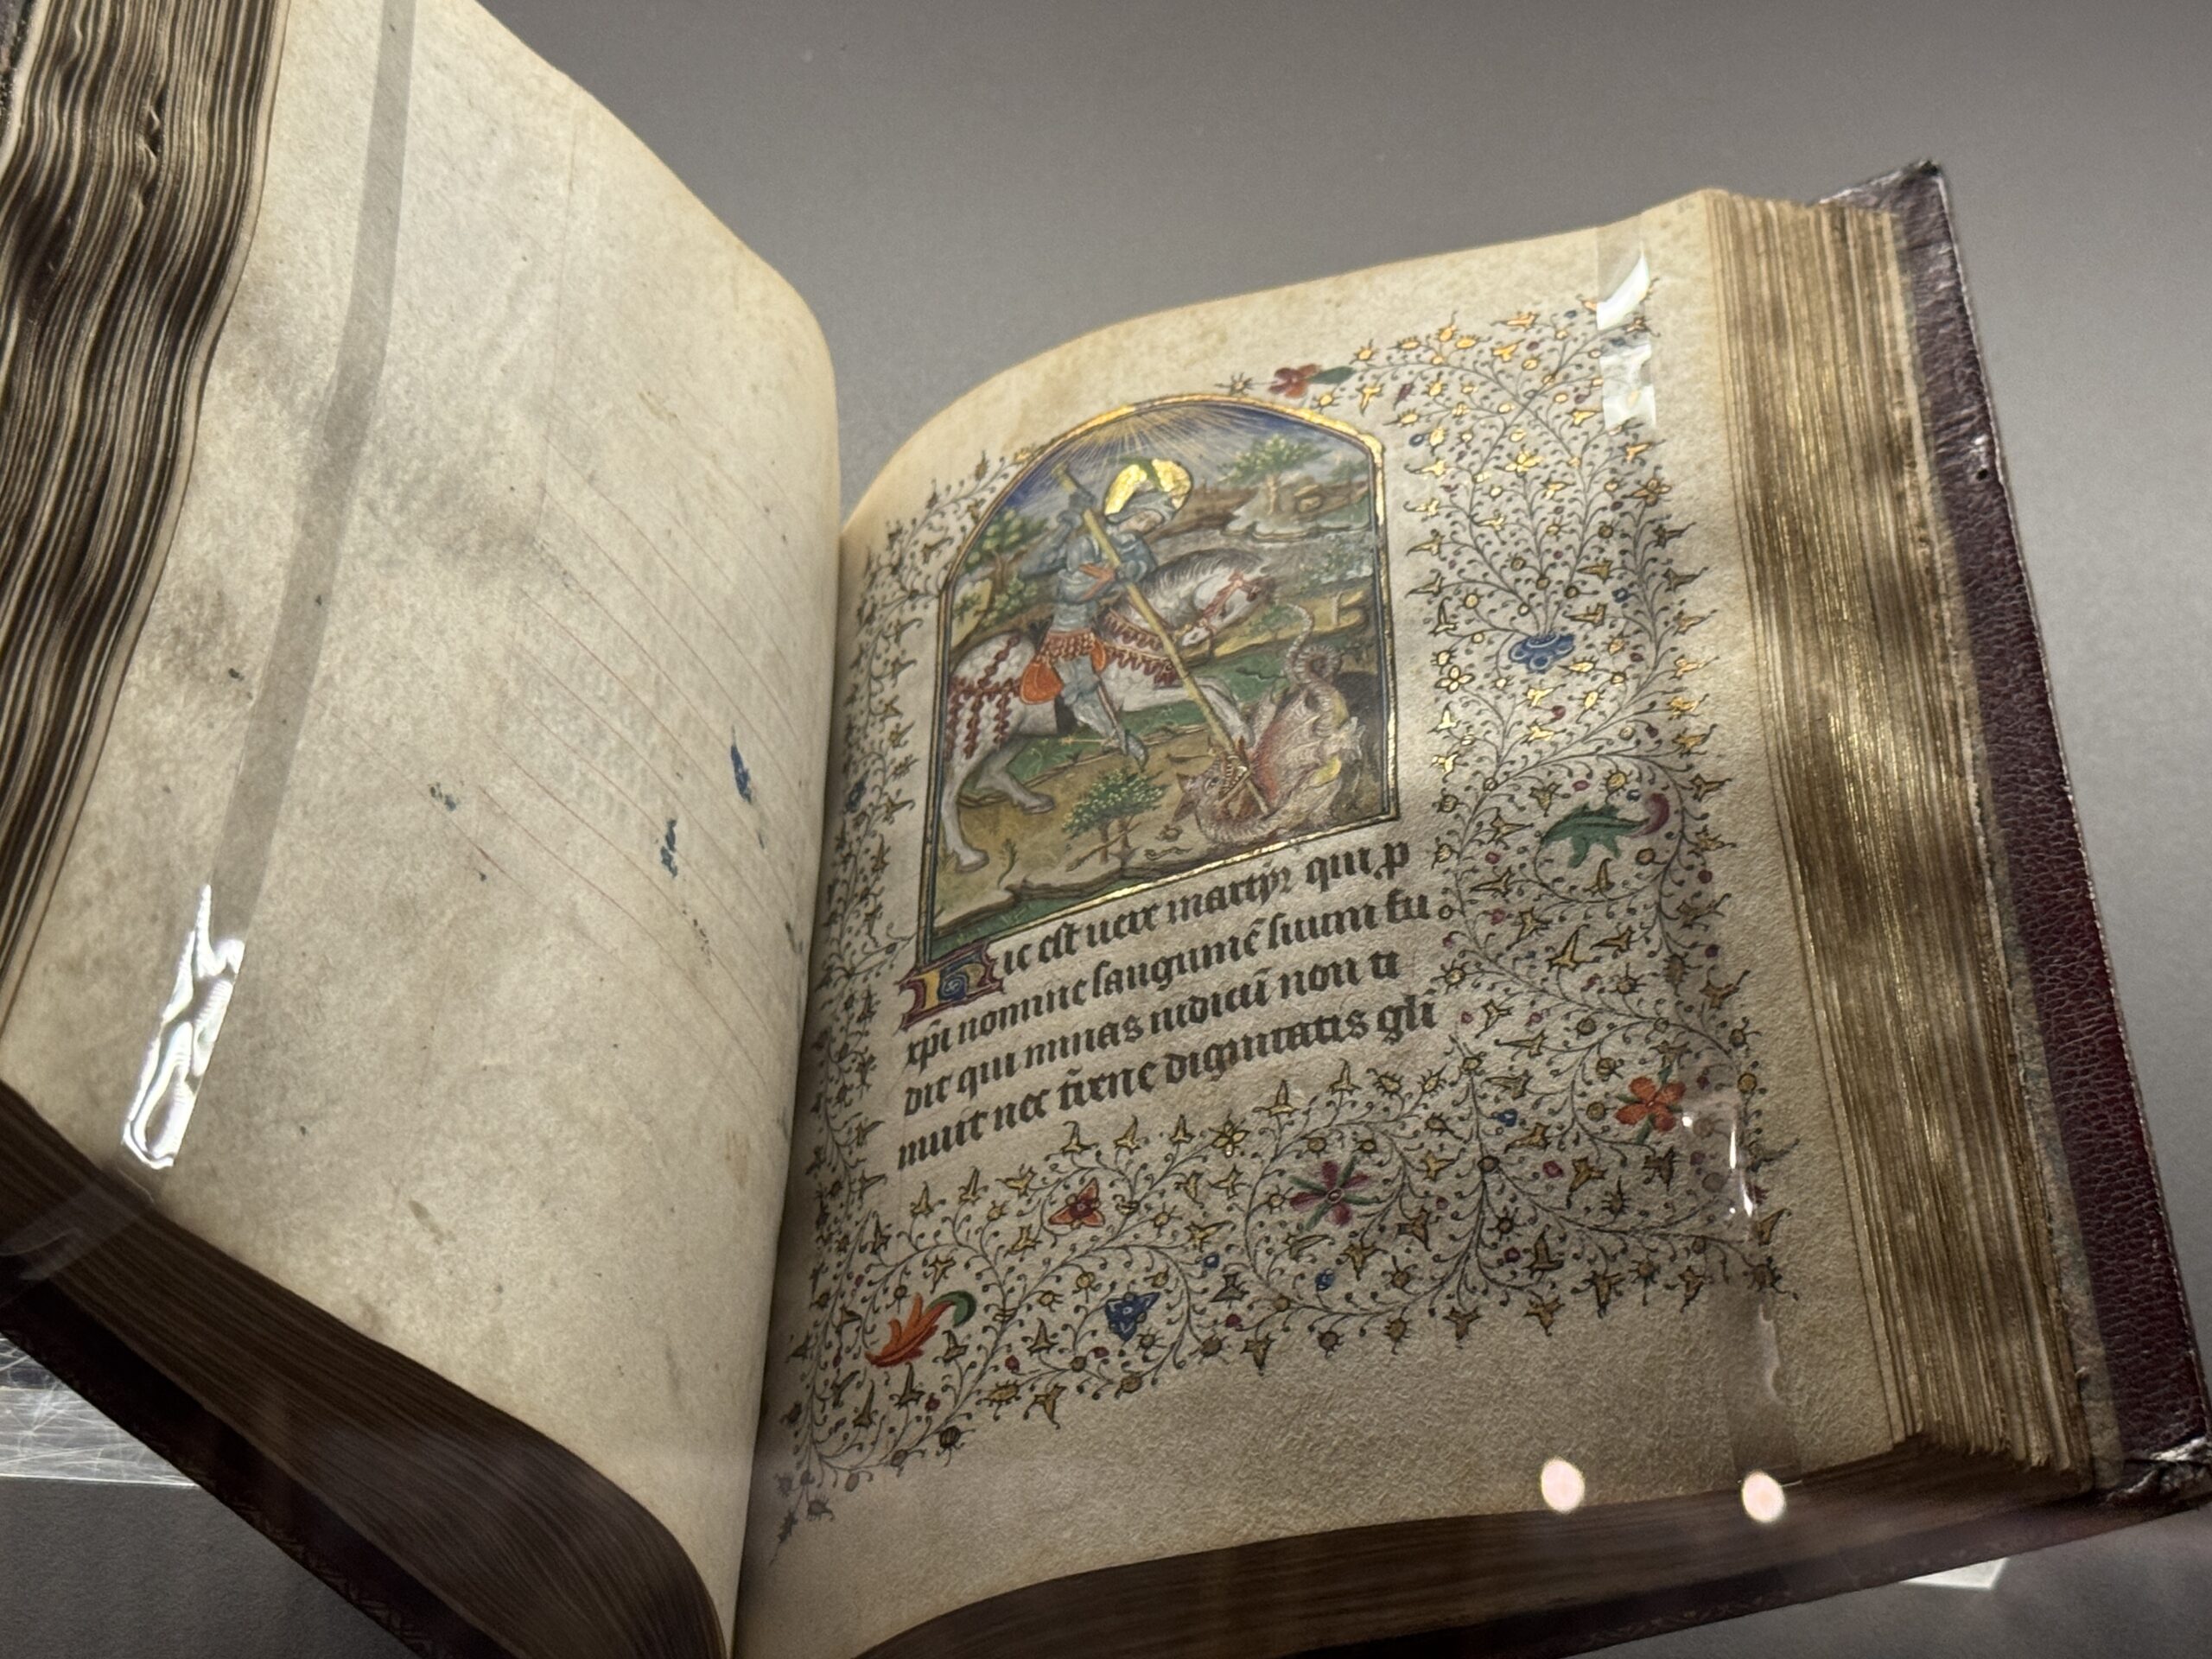 Hic est uere martyr qui p
xp̄i nomine sanguinē suum fu
dit qui minas iudicū non ti
muit nec t̄rene dignitatis glī